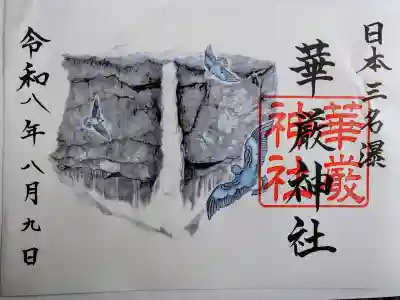 日本三名瀑
華厳神社
華厳
神社
令和八年八月九日